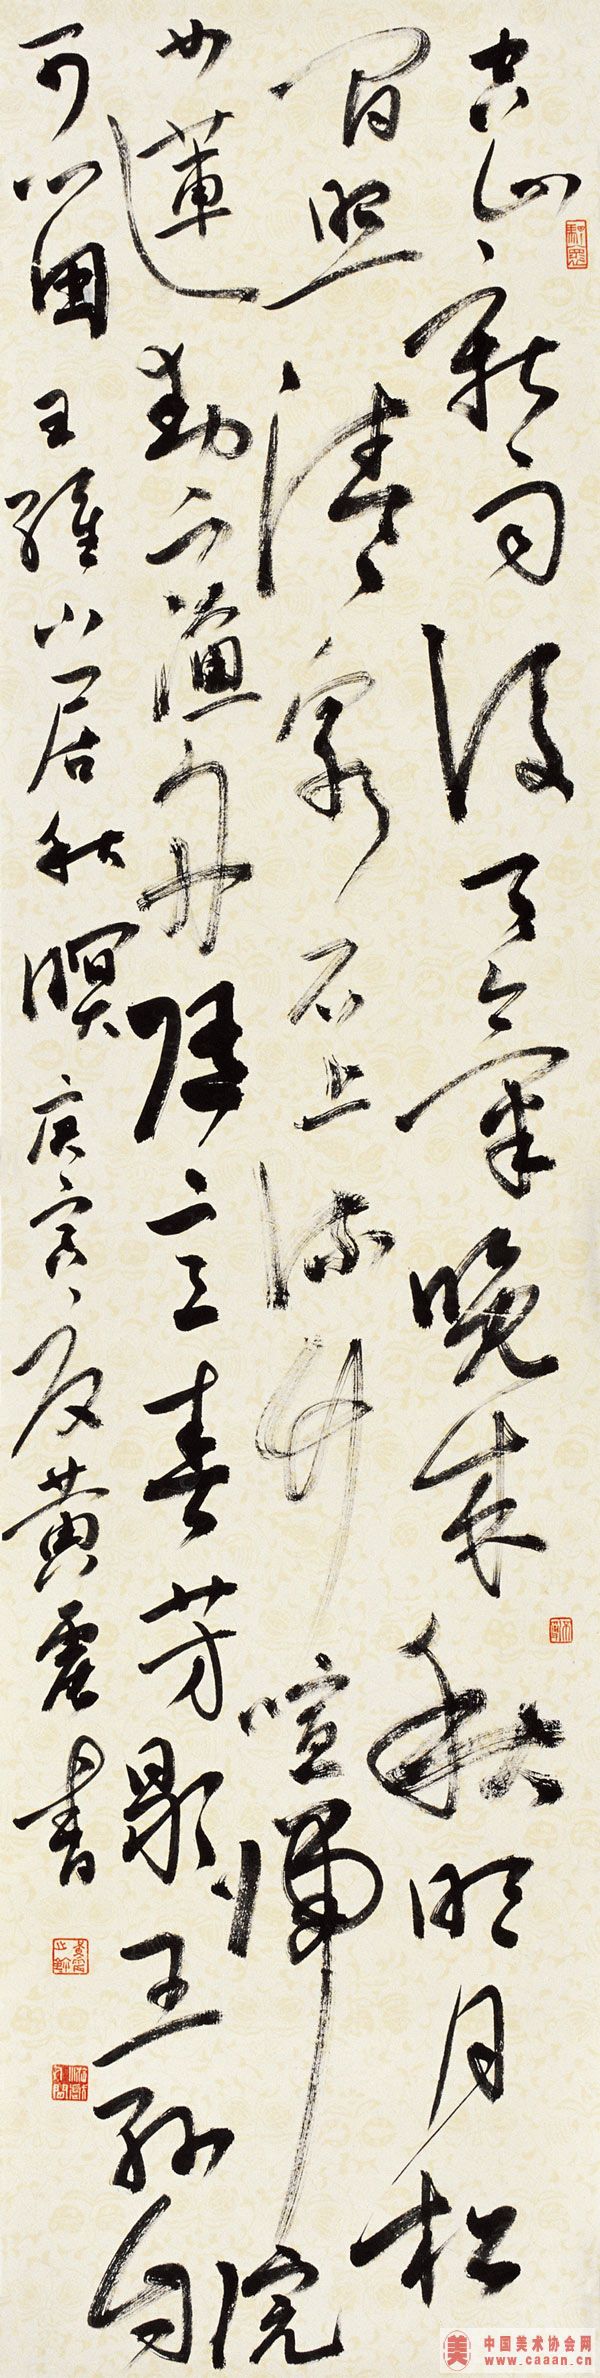 空山新雨後天氣晚来秋明月松
間照清泉石上流竹喧歸浣
女蓮動下漁舟隨意春芳歇王孫自
可留 王維山居秋暝 庚寅夏黄書
美 中国美术协会网
www.caaan.cn